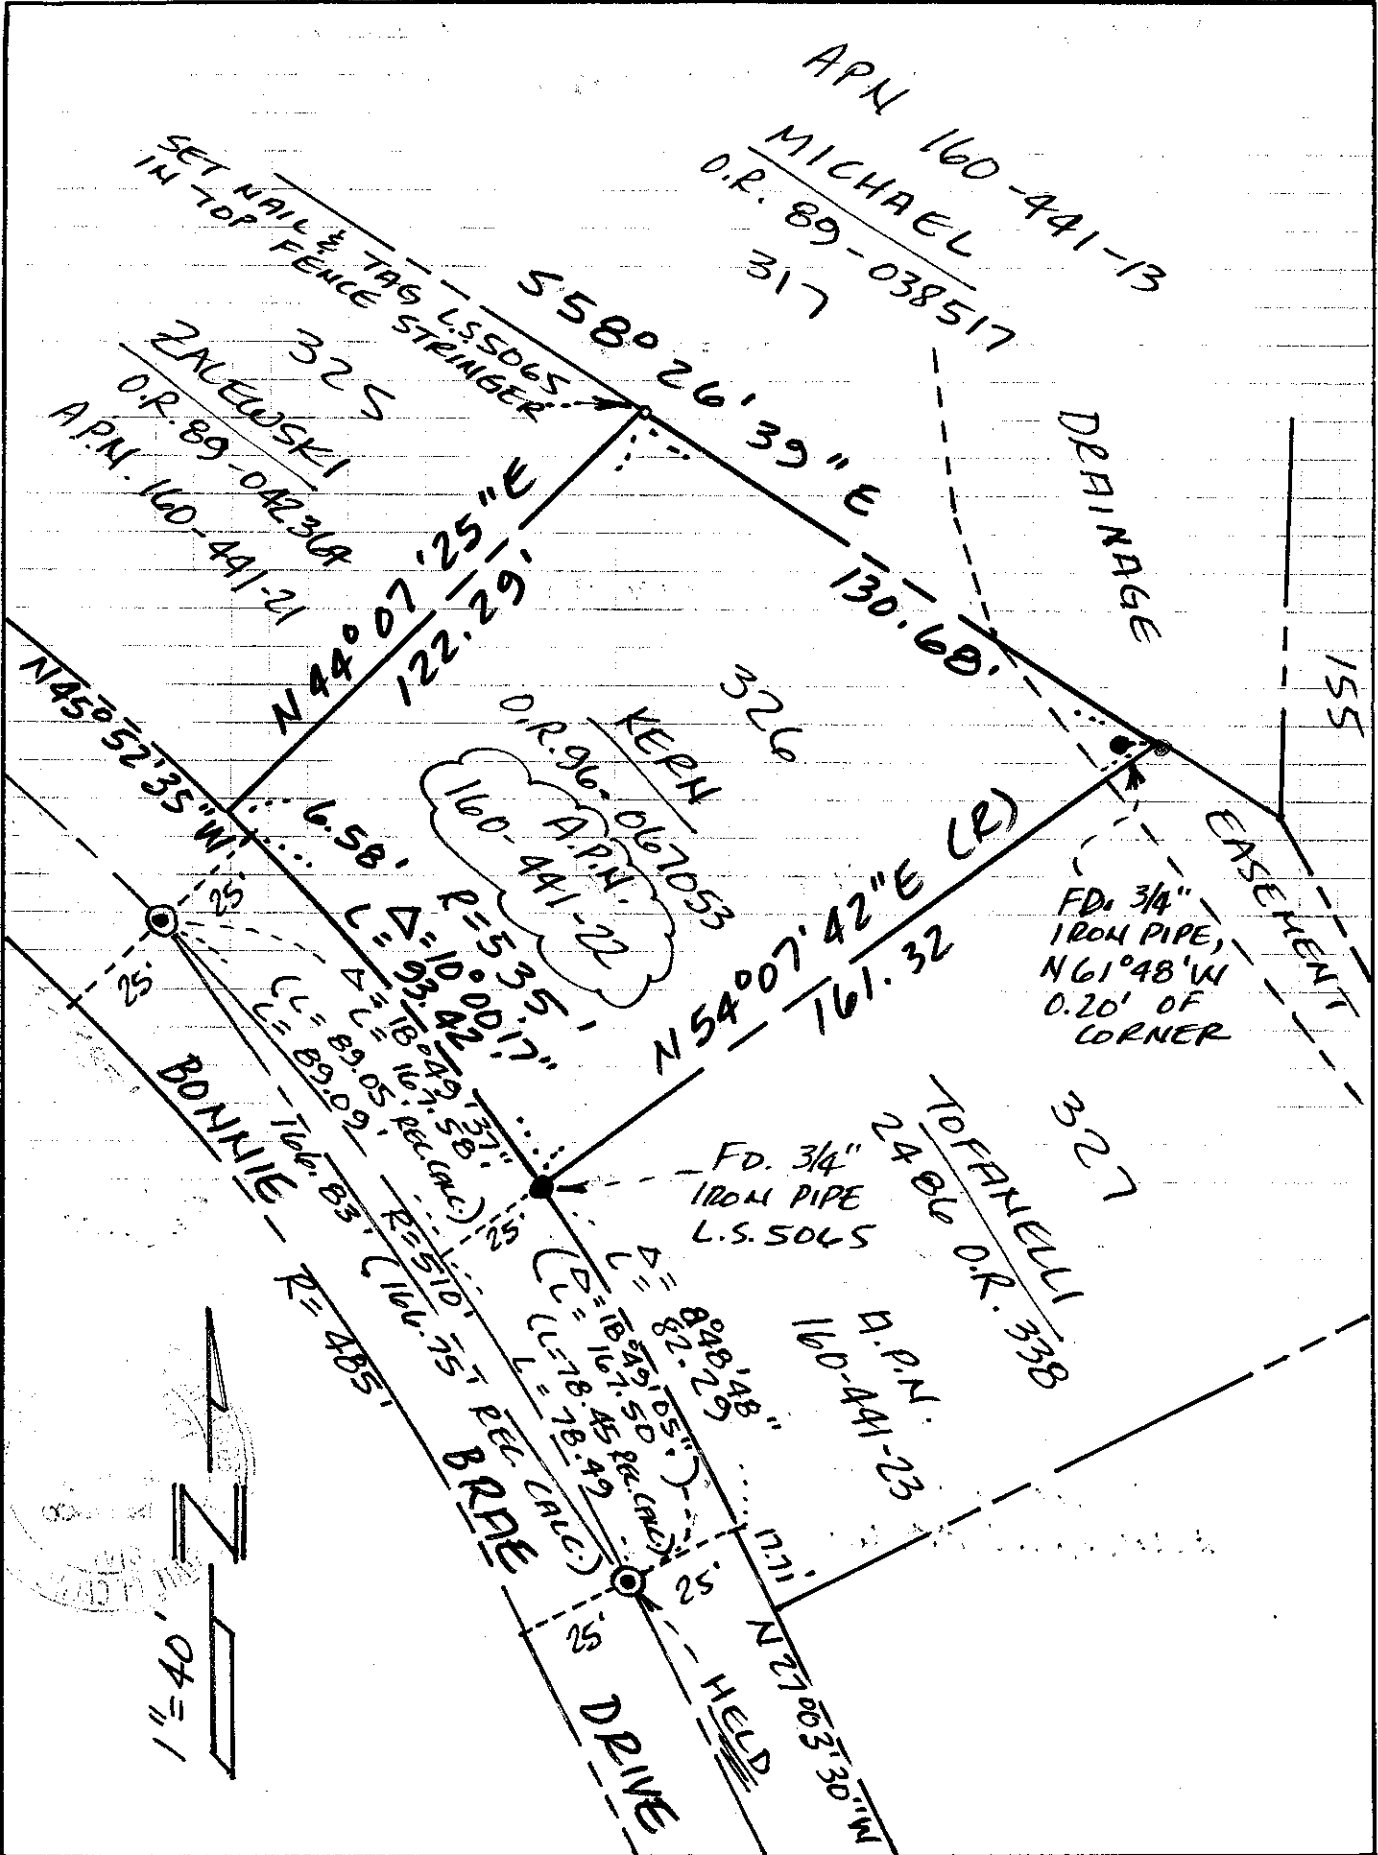 APN 160-441-13
MICHAEL
O.R. 89-038517
317
SET NAIL & TAG L.S.5065
IN TOP FENCE STRINGER
S 58° 26' 39" E
130.68'
DRAINAGE
EASEMENT
155
325
ZALEWSKI
O.R. 89-042364
A.P.N. 160-441-21
N 44° 07' 25" E
122.29'
N45°52'35"W
326
KERN
O.R. 96-067053
A.P.N.
160-441-22
6.58'
R=535'
Δ=10°00'17"
L=93.42'
N 54°07'42"E (R)
161.32
FD. 3/4"
IRON PIPE,
N61°48'W
0.20' OF
CORNER
25'
25'
Δ=18°49'37"
L=167.58'
(L=89.05' REC. CALC.)
L=89.09'
166.83' (166.75' REC. CALC.)
R=510'
25'
FD. 3/4"
IRON PIPE
L.S. 5065
327
TOFANELLI
2486 O.R. 338
A.P.N.
160-441-23
Δ=8°48'48"
L=82.29
(Δ=18°49'05"
L=167.50')
(L=78.45 REC. CALC.)
L=78.49
17.71'
25'
25'
N27°03'30"W
HELD
BONNIE BRAE DRIVE
R=485'
N
1"=40'